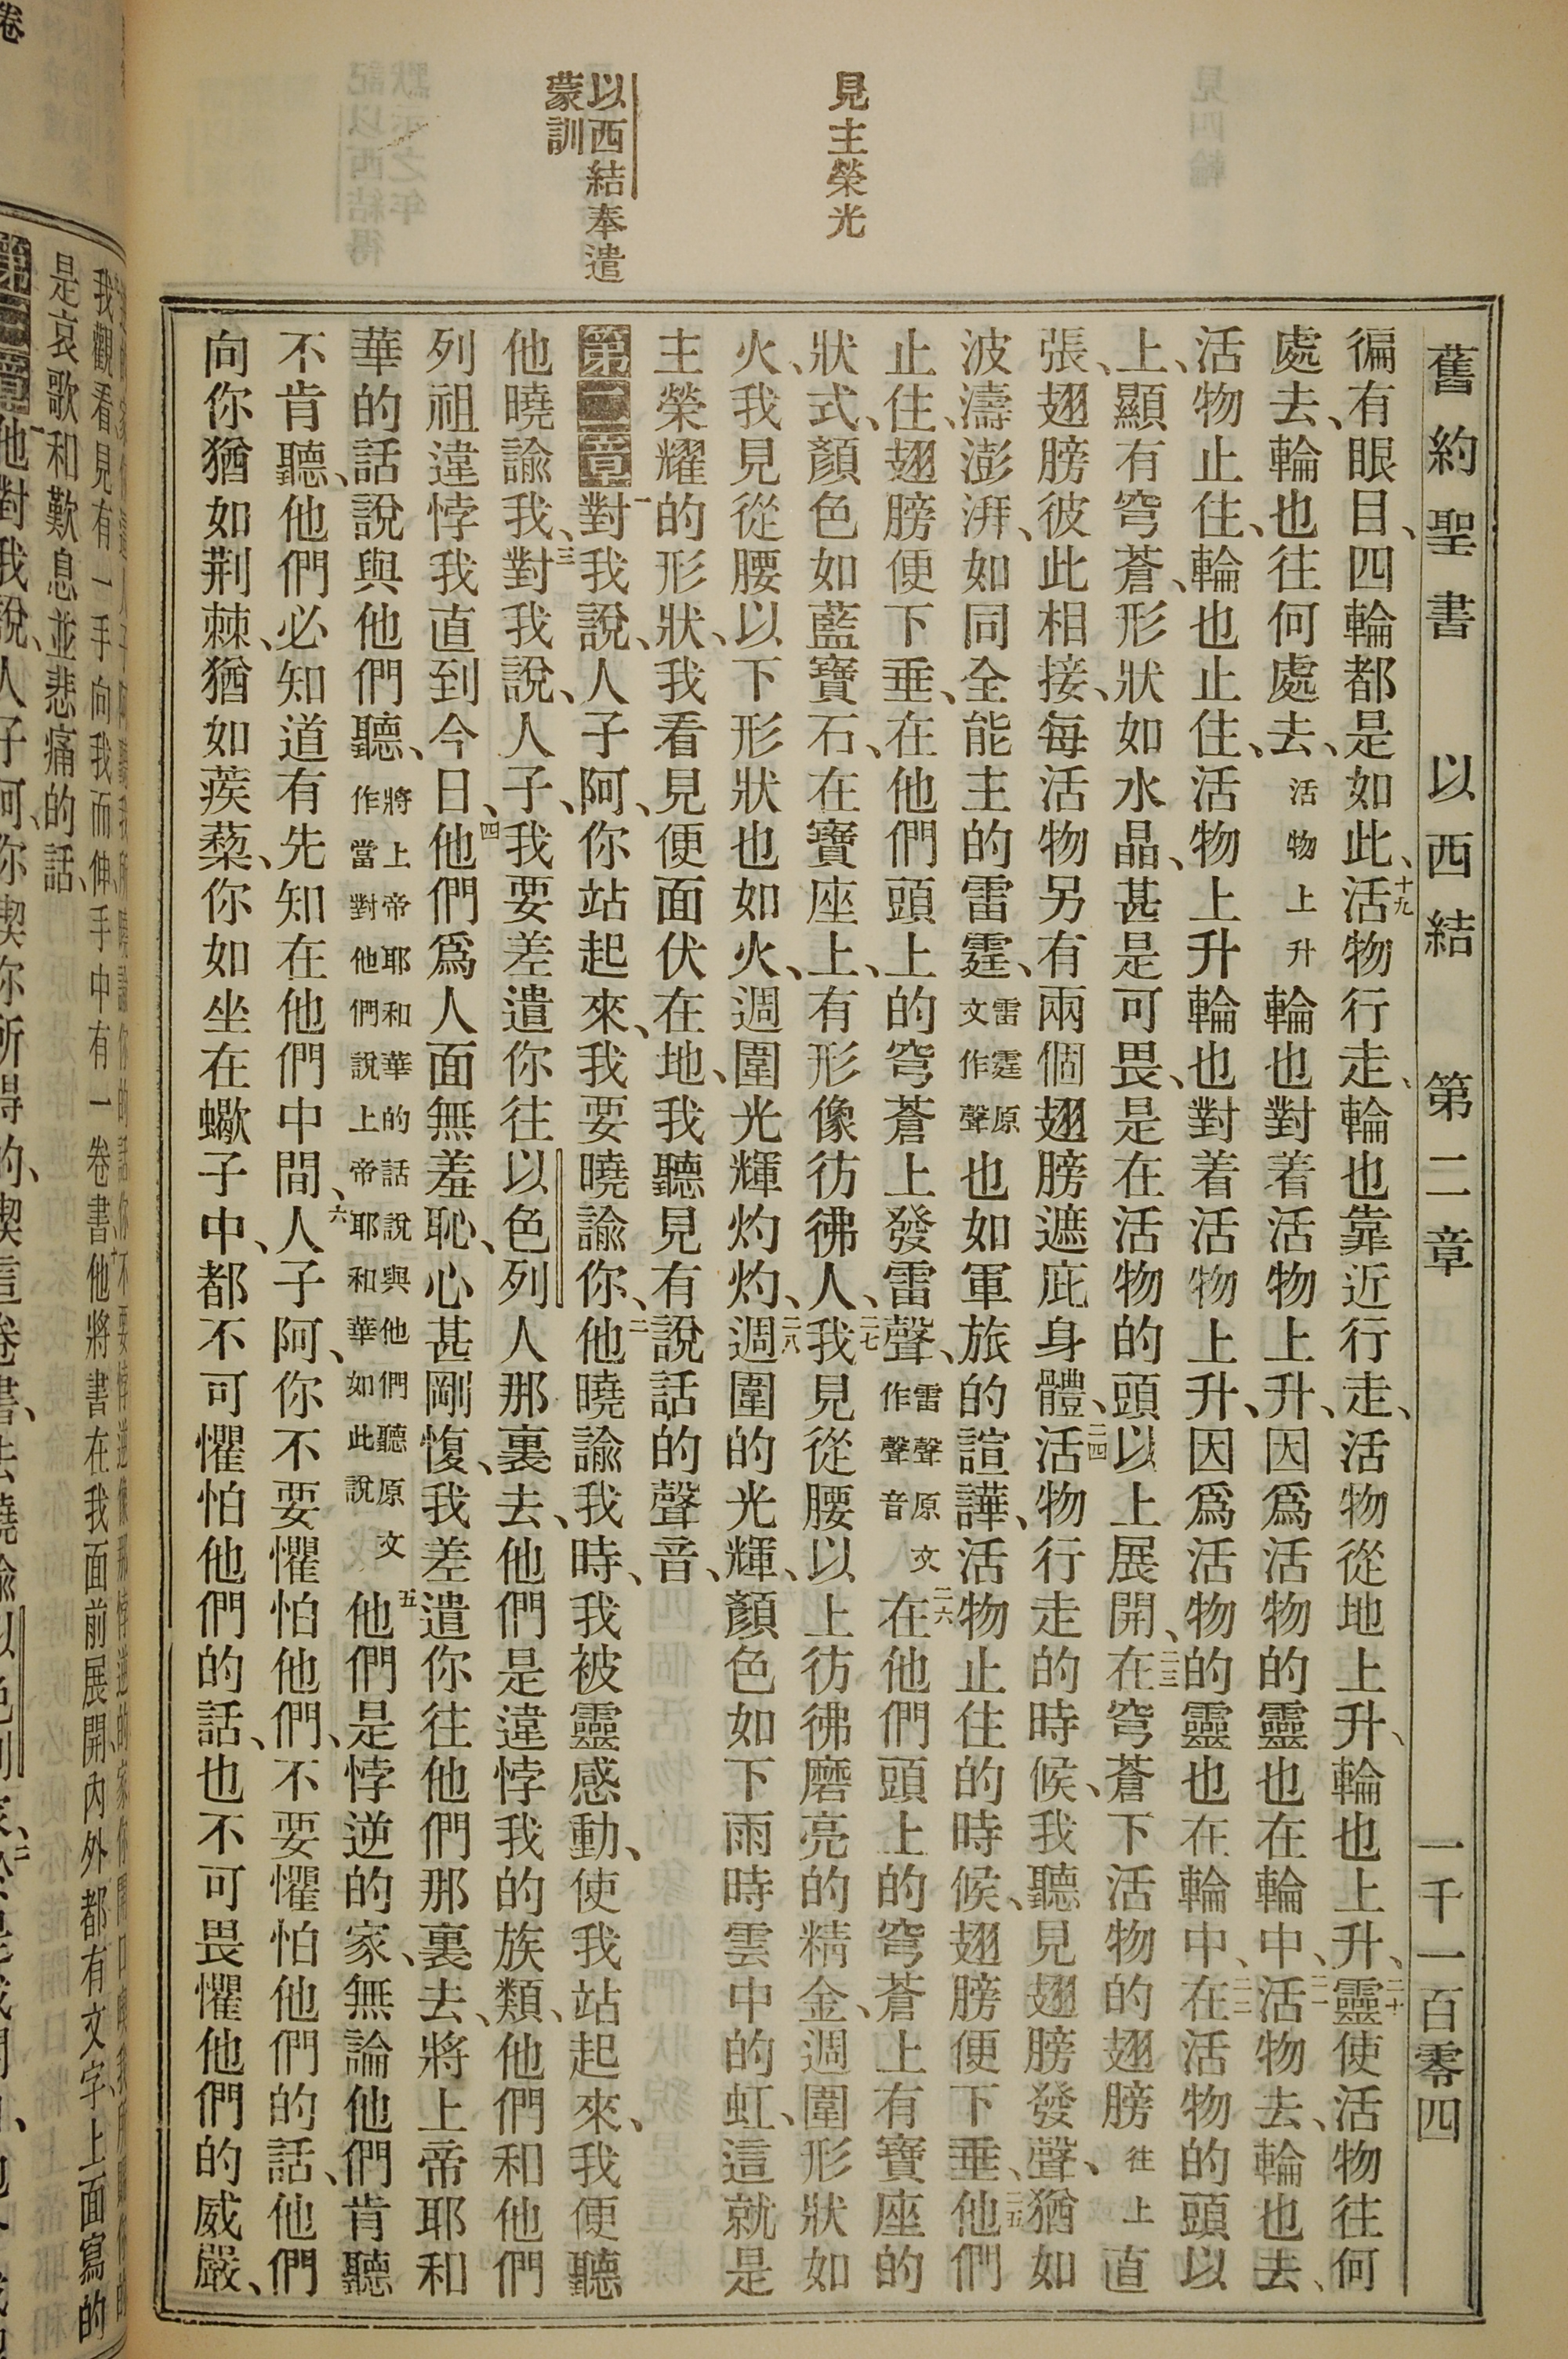 見主榮光
以西結奉遣
蒙訓
舊約聖書 以西結 第二章 一千一百零四
徧有眼目、四輪都是如此、十九活物行走、輪也靠近行走、活物從地上升、輪也上升、二十靈使活物往何
處去、輪也往何處去、活物上升輪也對着活物上升、因爲活物的靈也在輪中、二一活物去、輪也去、
活物止住、輪也止住、活物上升輪也對着活物上升、因爲活物的靈也在輪中、二二在活物的頭以
上、顯有穹蒼、形狀如水晶、甚是可畏、是在活物的頭以上展開、二三在穹蒼下活物的翅膀往上直
張、翅膀彼此相接、每活物另有兩個翅膀遮庇身體、二四活物行走的時候、我聽見翅膀發聲、猶如
波濤澎湃、如同全能主的雷霆、雷霆原文作聲也如軍旅的諠譁、活物止住的時候、翅膀便下垂、二五他們
止住、翅膀便下垂、在他們頭上的穹蒼上發雷聲、雷聲原文作聲音二六在他們頭上的穹蒼上有寶座的
狀式、顏色如藍寶石、在寶座上、有形像彷彿人、二七我見從腰以上彷彿磨亮的精金、週圍形狀如
火、我見從腰以下形狀也如火、週圍光輝灼灼、二八週圍的光輝、顏色如下雨時雲中的虹、這就是
主榮耀的形狀、我看見便面伏在地、我聽見有說話的聲音、
第二章一對我說、人子阿、你站起來、我要曉諭你、二他曉諭我時、我被靈感動、使我站起來、我便聽
他曉諭我、三對我說、人子、我要差遣你往以色列人那裏去、他們是違悖我的族類、他們和他們
列祖違悖我直到今日、四他們爲人面無羞恥、心甚剛愎、我差遣你往他們那裏去、將上帝耶和
華的話說與他們聽、將上帝耶和華的話說與他們聽原文作當對他們說上帝耶和華如此說五他們是悖逆的家、無論他們肯聽
不肯聽、他們必知道有先知在他們中間、六人子阿、你不要懼怕他們、不要懼怕他們的話、他們
向你猶如荆棘、猶如蒺藜、你如坐在蠍子中、都不可懼怕他們的話、也不可畏懼他們的威嚴、
我觀看見有一手向我而伸、手中有一卷書他將書在我面前展開、內外都有文字、上面寫的
是哀歌和歎息並悲痛的話、
第三章一他對我說、人子阿、你喫你所得的、喫這卷書、去曉諭以色列家、